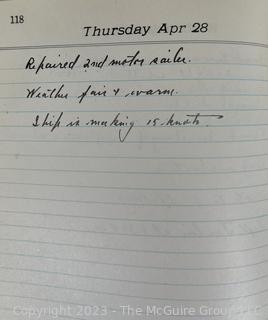 118
Thursday Apr 28
Repaired 2nd motor sailer.
Weather fair & warm.
Ship is making 15 knots.
Copyright 2023 - The McGuire Group LLC